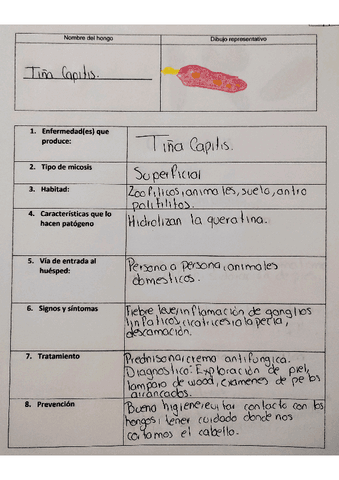 Nombre del hongo
Dibujo representativo
Tiña Capitis.
1. Enfermedad(es) que
produce:
Tiña Capitis.
2. Tipo de micosis
Superficial
3. Habitad:
Zoofilicos, animales, suelo, antro
pofilitos.
4. Características que lo
hacen patógeno
Hidrolizan la queratina.
5. Vía de entrada al
huésped:
Persona a persona, animales
domesticos.
6. Signos y síntomas
Fiebre leve, inflamación de ganglios
linfaticos, cicatrices, alopecia,
descamación.
7. Tratamiento
Prednisona, crema antifungica.
Diagnostico: Exploración de piel,
lampara de wood, examenes de pelos
arrancados.
8. Prevención
Buena higiene, evitar contacto con los
hongos, tener cuidado donde nos
cortamos el cabello.